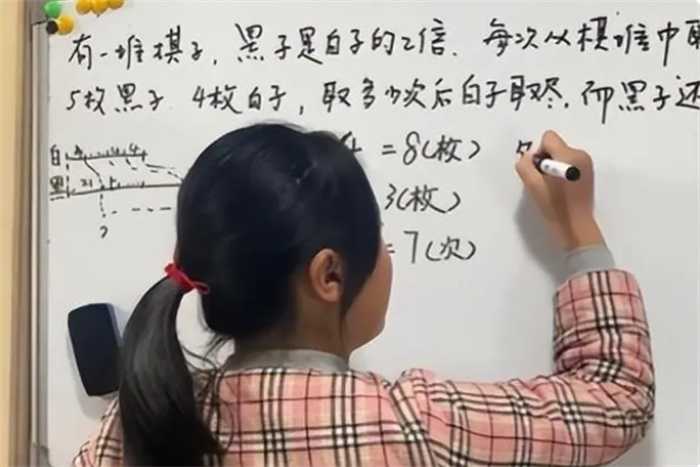 有一堆棋子，黑子是白子的2倍．每次从棋堆中
5枚黑子 4枚白子，取多少次后白子取尽．而黑子还
白 4
黑
= 8(枚)
3(枚)
= 7(次)
?